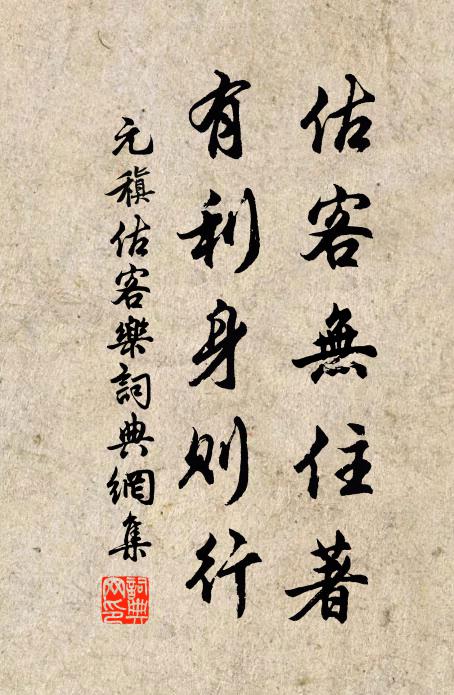 估客無住著
有利身則行
元稹估客樂詞典網集
詞典網印